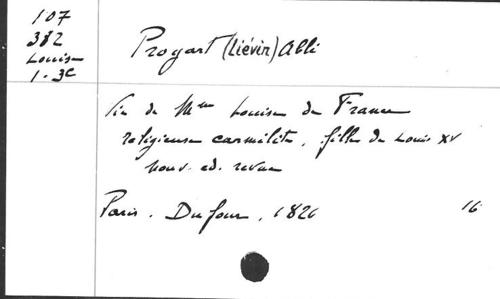 107
382
Louise
1-3c
Proyart (Liévin) Abbé
Vie de Mme Louise de France
religieuse carmélite, fille de Louis XV
nouv. ed. revue
Paris. Dufour, 1826 16